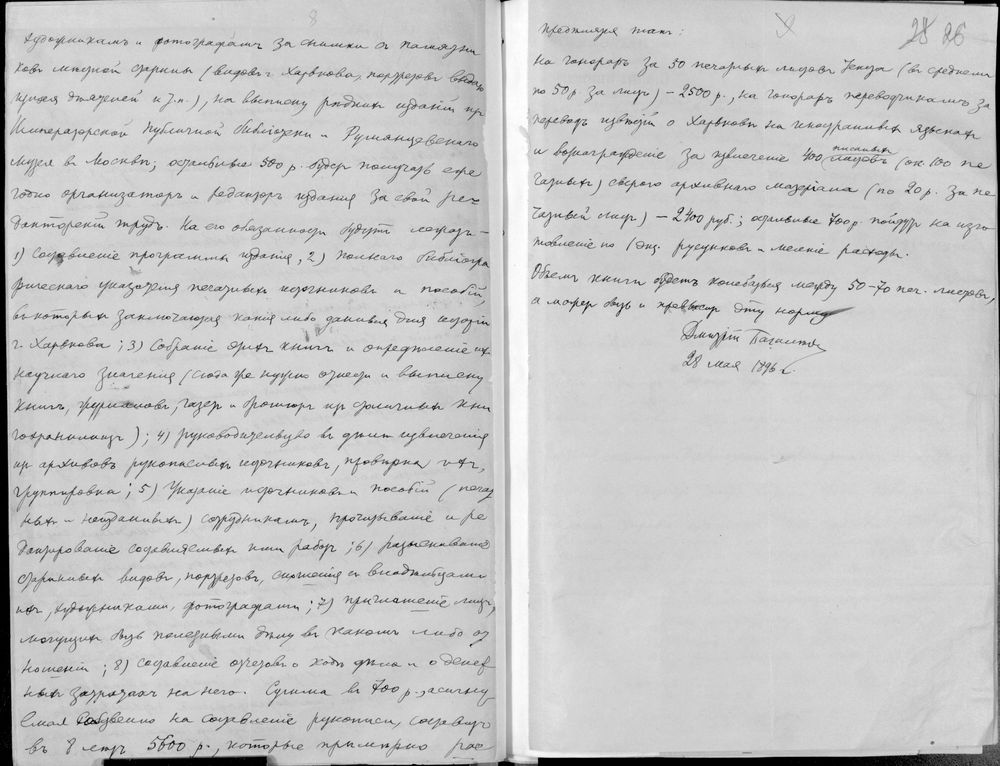 8
художникамъ и фотографамъ за снимки съ памятни
ковъ мѣстной старины (видовъ г. Харькова, портретовъ выдаю
щихся дѣятелей и т.п.), на выписку рѣдкихъ изданій изъ
Императорской Публичной библіотеки и Румянцевскаго
музея въ Москвѣ; остальные 500 р. будетъ получать еже
годно организаторъ и редакторъ изданія за свой ре
дакторскій трудъ. На его обязанности будутъ лежать —
1) составленіе программы изданія, 2) полнаго библіогра
фическаго указателя печатныхъ источниковъ и пособій,
въ которыхъ заключаются какія либо данныя для исторіи
г. Харькова; 3) собраніе этихъ книгъ и опредѣленіе ихъ
научнаго значенія (сюда же нужно отнести и выписку
книгъ, журналовъ, газетъ и брошюръ изъ столичныхъ кни
гохранилищъ); 4) руководительство въ дѣлѣ извлеченія
изъ архивовъ рукописныхъ источниковъ, провѣрка ихъ,
группировка; 5) указаніе источниковъ и пособій (печат
ныхъ и неизданныхъ) сотрудникамъ, прочитываніе и ре
дактированіе составляемыхъ ими работъ; 6) разыскиваніе
старинныхъ видовъ, портретовъ, сношенія съ владѣльцами
ихъ, художниками, фотографами; 7) приглашеніе лицъ,
могущихъ быть полезными дѣлу въ какомъ либо от
ношеніи; 8) составленіе отчетовъ о ходѣ дѣла и о денеж
ныхъ затратахъ на него. Сумма въ 700 р., ассигну
емая собственно на составленіе рукописи, составитъ
въ 8 лѣтъ 5600 р., которые примѣрно рас
28 26
предѣлятся такъ:
на гонораръ за 50 печатныхъ листовъ текста (въ среднемъ
по 50 р. за листъ) — 2500 р., на гонораръ переводчикамъ за
переводъ извѣстій о Харьковѣ на иностранныхъ языкахъ
и вознагражденіе за извлеченіе 400 писанныхъ листовъ (ок. 100 пе
чатныхъ) сырого архивнаго матеріала (по 20 р. за пе
чатный листъ) — 2400 руб.; остальные 700 р. пойдутъ на изго
товленіе по 1 экз. рисунковъ и мелкіе расходы.
Объемъ книги будетъ колебаться между 50–70 печ. листовъ,
а можетъ быть и превысит эту норму
Дмитрій Багалѣй
28 мая 1896 г.